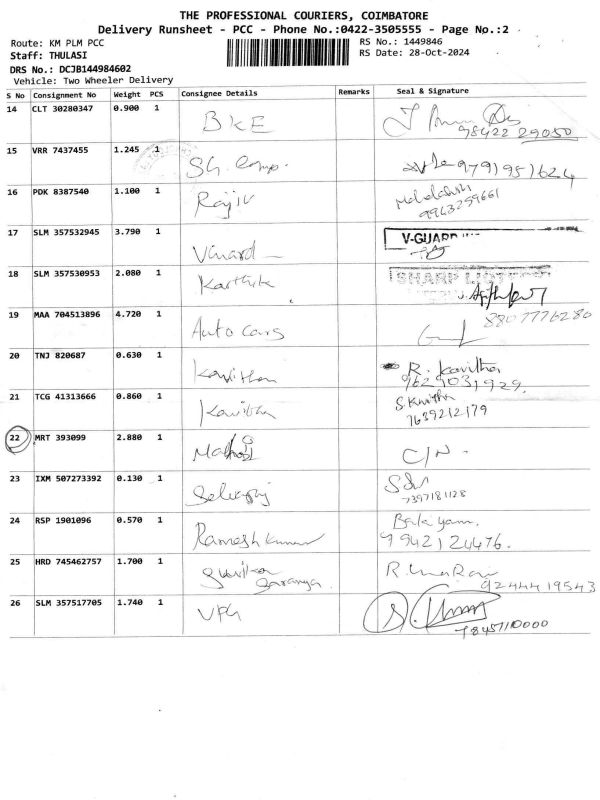 THE PROFESSIONAL COURIERS, COIMBATORE
Delivery Runsheet - PCC - Phone No.:0422-3505555 - Page No.:2
Route: KM PLM PCC
RS No.: 1449846
Staff: THULASI
RS Date: 28-Oct-2024
DRS No.: DCJB144984602
Vehicle: Two Wheeler Delivery
S No Consignment No Weight PCS Consignee Details Remarks Seal & Signature
14 CLT 30280347 0.900 1 BKE
98422 29050
15 VRR 7437455 1.245 1 SG. Comp. 9791951624
16 PDK 8387540 1.100 1 Rajiv
9963259661
17 SLM 357532945 3.790 1 V-GUARD
18 SLM 357530953 2.080 1 Karthik SHARP
19 MAA 704513896 4.720 1 Auto cars 8807776280
20 TNJ 820687 0.630 1 Kavitha R. Kavitha
9629031929.
21 TCG 41313666 0.860 1 Kavitha S. Kavitha
7639212179
22 MRT 393099 2.880 1 C/N.
23 IXM 507273392 0.130 1 Selvaraj
7397181128
24 RSP 1901096 0.570 1 Ramesh kumar
9942124476.
25 HRD 745462757 1.700 1 Saranya.
9244419543
26 SLM 357517705 1.740 1 VPG
7845710000